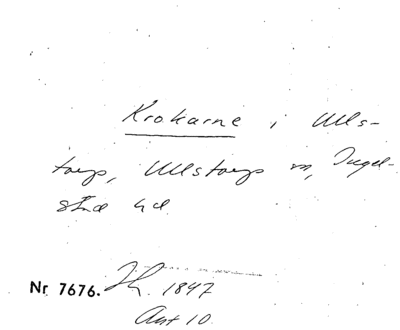 Krokarne i Ulls-
torp, Ullstorps sn, Ingel-
stad hd.
Nr 7676. Th. 1847
Ant 10.